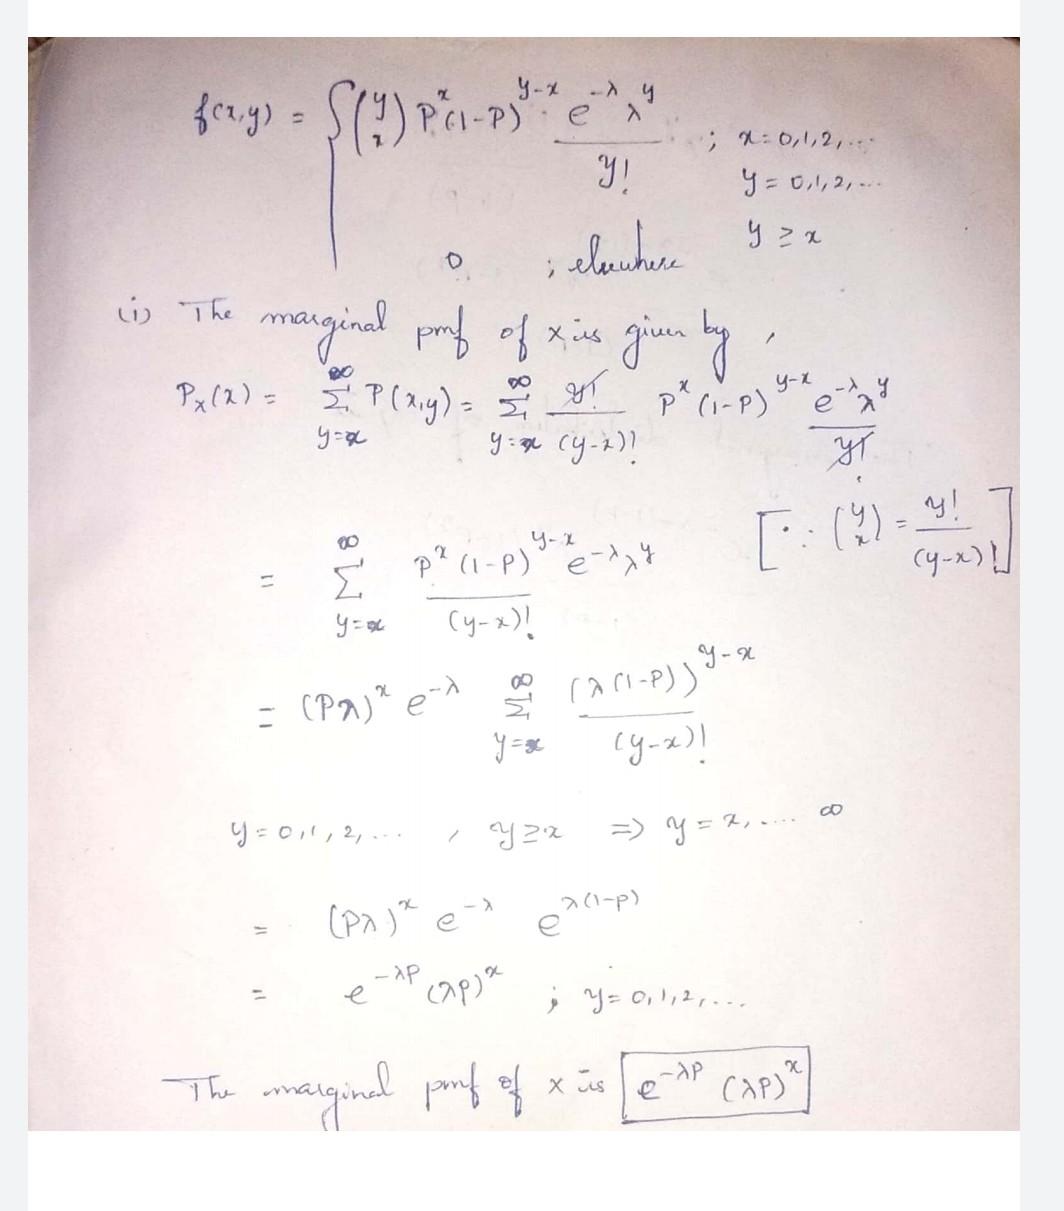 f(x,y) = { (y x) P^x (1-P)^{y-x} · e^{-λ} λ^y / y! ; x = 0,1,2,...
y = 0,1,2,...
y ≥ x
0 ; elsewhere
(i) The marginal pmf of x is given by,
P_x(x) = ∞Σ_{y=x} P(x,y) = ∞Σ_{y=x} y! / (y-x)! P^x (1-P)^{y-x} e^{-λ} λ^y / y!
[∵ (y x) = y! / (y-x)!]
= ∞Σ_{y=x} P^x (1-P)^{y-x} e^{-λ} λ^y / (y-x)!
= (Pλ)^x e^{-λ} ∞Σ_{y=x} (λ(1-P))^{y-x} / (y-x)!
y = 0,1,2,... , y ≥ x ⇒ y = x,.... ∞
= (Pλ)^x e^{-λ} e^{λ(1-P)}
= e^{-λP} (λP)^x ; y = 0,1,2,...
The marginal pmf of x is e^{-λP} (λP)^x